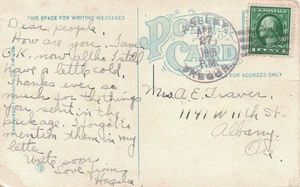 THIS SPACE FOR WRITING MESSAGES
POST CARD
FOR ADDRESS ONLY
Dear people.
How are you. I am
O.K. now altho I still
have a little cold.
Thanks ever so
much for the things
you sent in the
package. I forgot to
mention them in my
letter.
Write soon
Love from
JOSEPH
APR
27
P.M.
OREGON
Mrs. A. E. Traver.
1141 W 11th St.
Albany
Ore